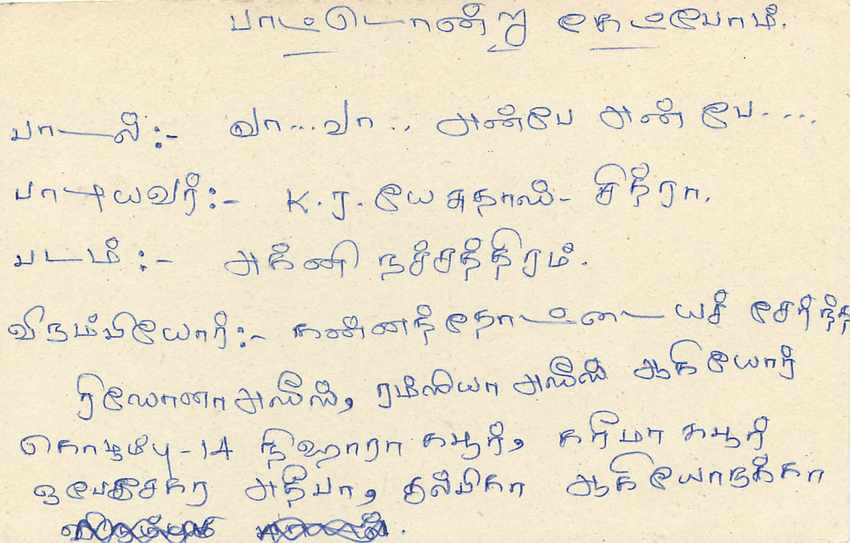 பாட்டொன்று கேட்போம்.
பாடல்:- வா...வா.. அன்பே அன்பே....
பாடியவர்:- K.ர.யேசுதாஸ்- சித்ரா.
படம்:- அக்னி நச்சத்திரம்.
விரும்பியோர்:- கண்ணந்தோட்டடையச் சேர்ந்த
றிஸோனா அஸீஸ், ரம்ஸியா அஸீஸ் ஆகியோர்
கொழும்பு-14 நிஹாரா கபூர், கரீமா கபூர்
ஒபேசேகர அதீபா, ஆகியோருக்கா